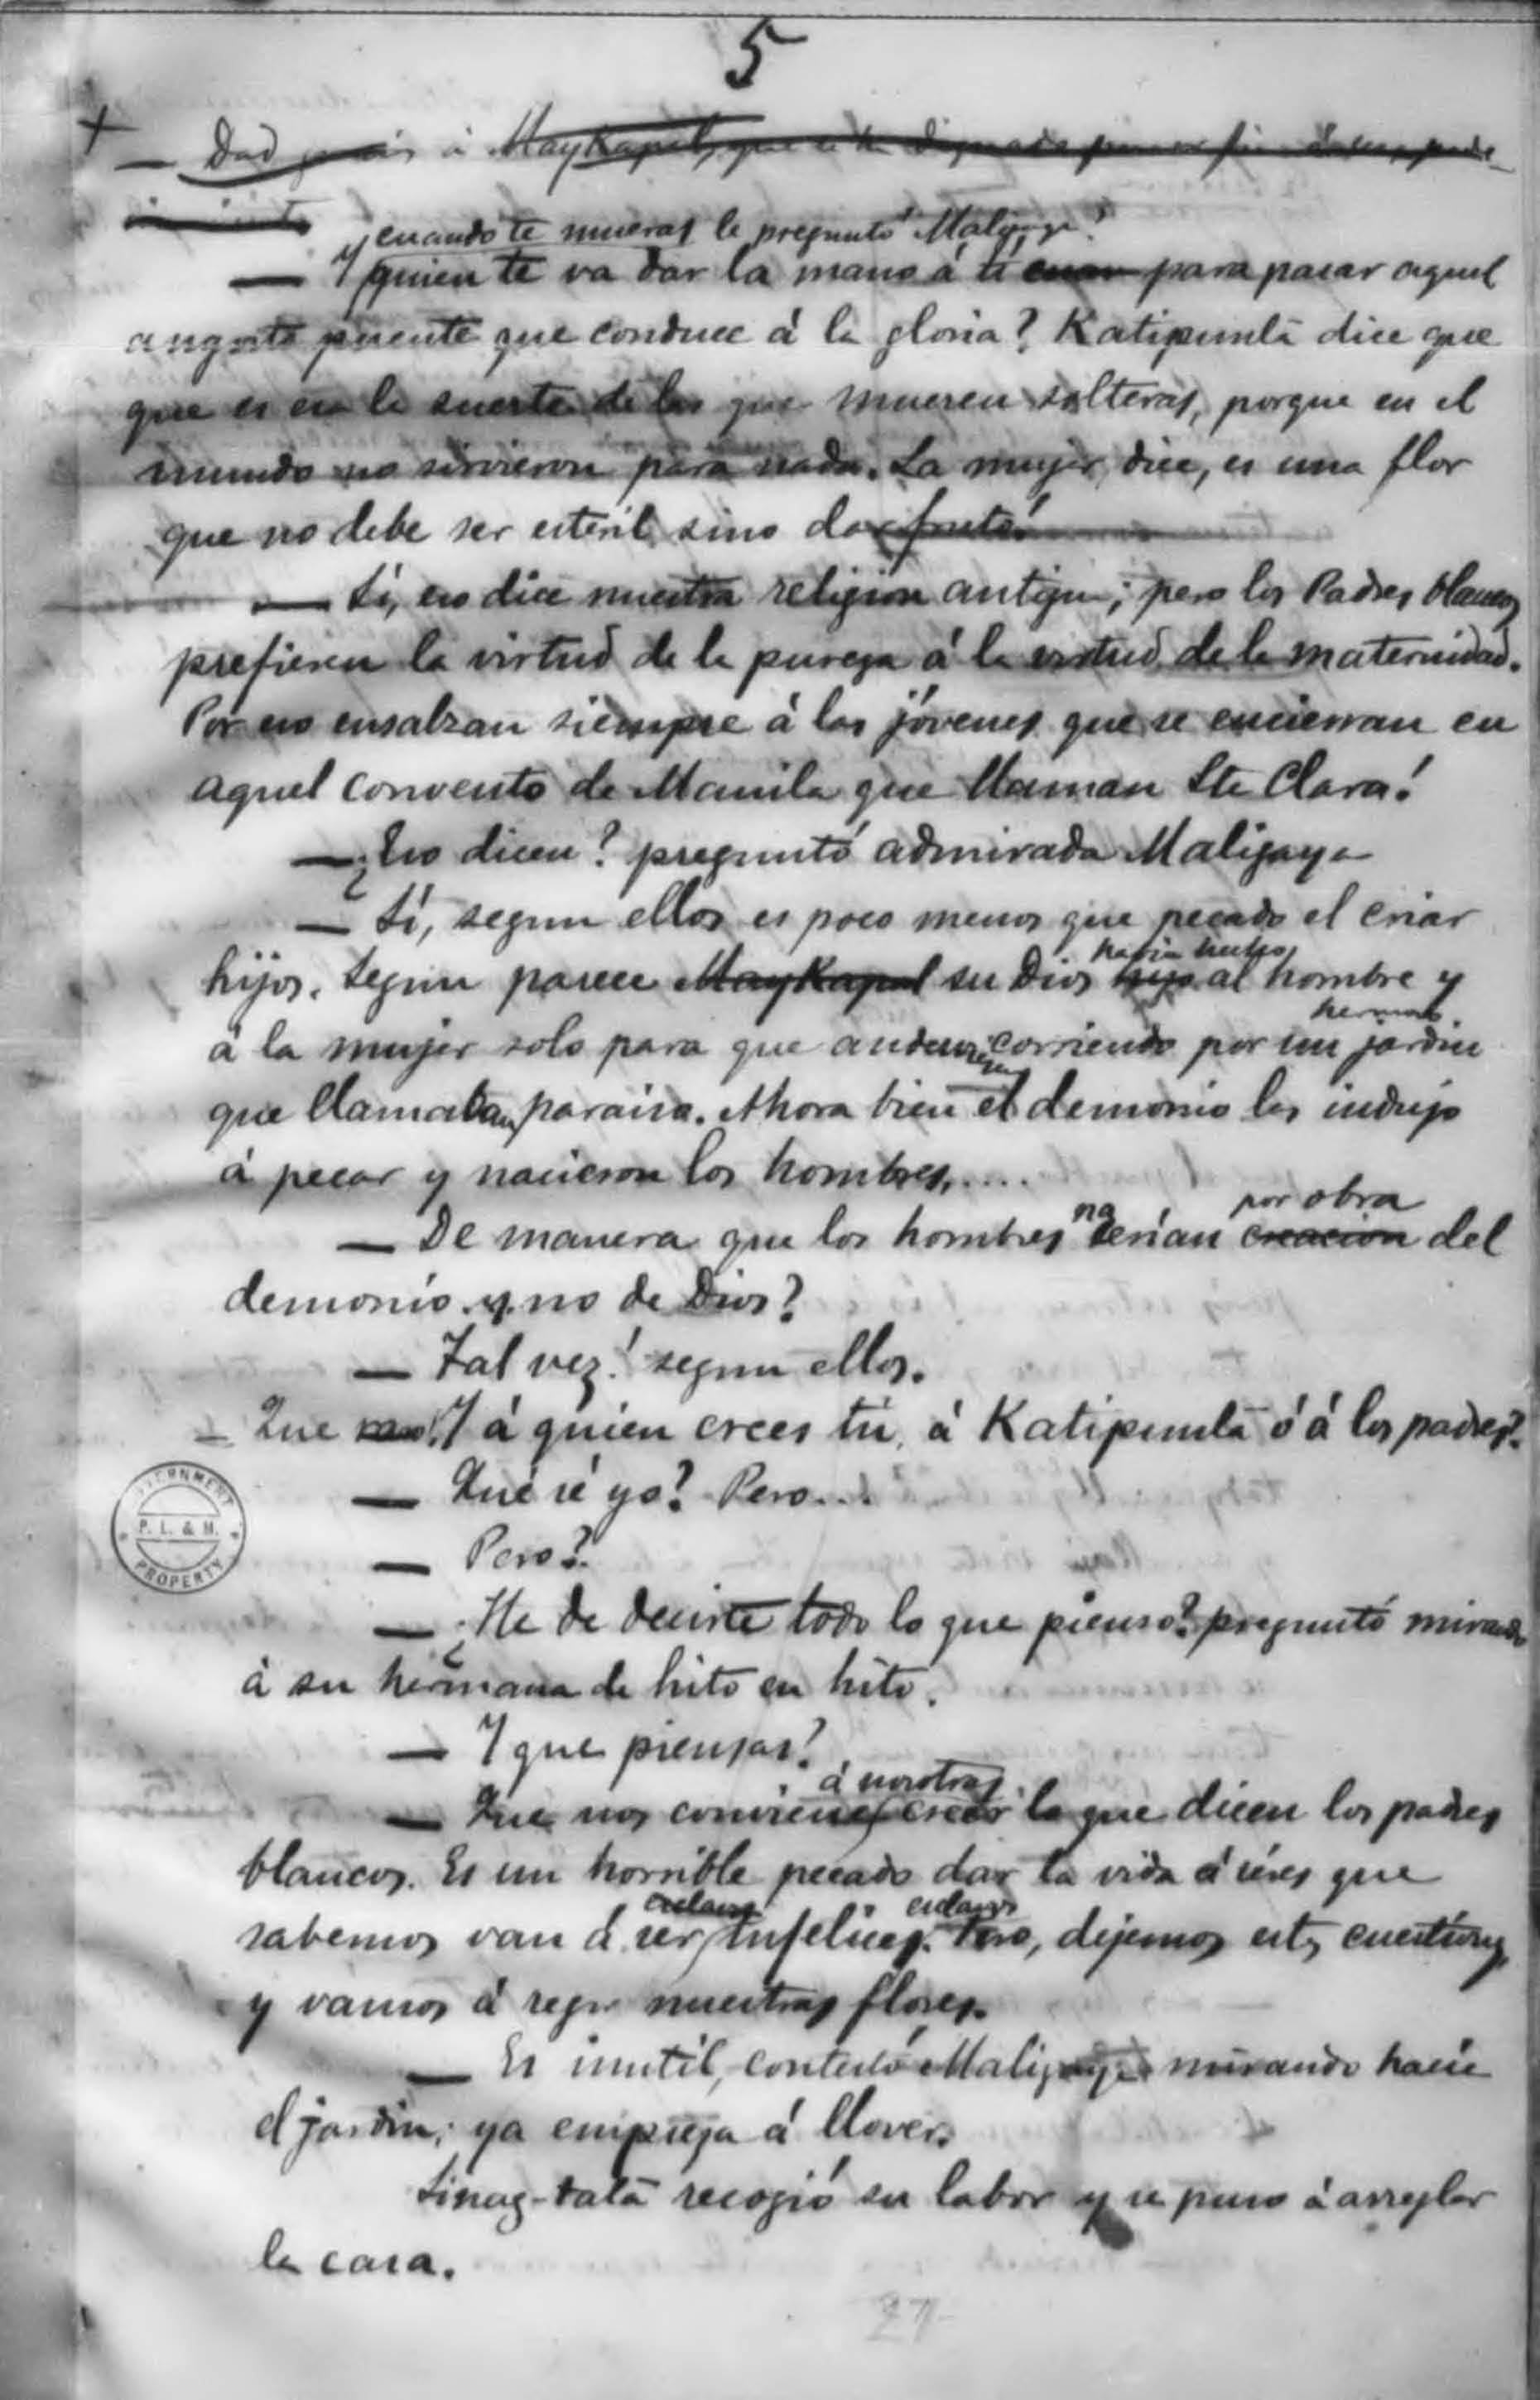 5
+
— Dad á MayKapal, que
y cuando te mueras le preguntó Maligaya?
— Y quien te va dar la mano á ti para pasar aquel
angosto puente que conduce á la gloria? Katipunlà dice que
que es esa la suerte de las que mueren solteras, porque en el
mundo no sirvieron para nada. La mujer, dice, es una flor
que no debe ser esteril sino dar fruto!
— Si, eso dice nuestra religion antigua; pero los Padres blancos
prefieren la virtud de la pureza á la virtud de la maternidad.
Por eso ensalzan siempre á las jóvenes que se encierran en
aquel convento de Manila que llaman Sta Clara!
— ¿Eso dicen? preguntó admirada Maligaya
— Si, segun ellos es poco menos que pecado el criar
había hecho
hijos. Segun parece MayKapal su Dios hizo al hombre y
hermoso
á la mujer solo para que anduviesen corriendo por un jardin
que llamaban paraiso. Ahora bien el demonio los indujo
á pecar y nacieron los hombres.....
na por obra
— De manera que los hombres serían creacion del
demonio y no de Dios?
— Tal vez! segun ellos.
— Que Y á quien crees tú, á Katipunlà ó á los padres?
— Qué sé yo? Pero...
— Pero?
— ¿He de decirte todo lo que pienso? preguntó mirando
á su hermana de hito en hito.
— Y que piensas?
á nosotras
— Que nos conviene creer lo que dicen los padres
blancos. Es un horrible pecado dar la vida á séres que
esclavos esclavos
sabemos van á ser infelices. Pero, dejemos estas cuestiones
y vamos á regar nuestras flores.
— Es inutil, contestó Maligaya mirando hacia
el jardin; ya empieza á llover.
Sinag-talà recogió su labor y se puso á arreglar
la casa.
GOVERNMENT
P. L. & M.
PROPERTY
27